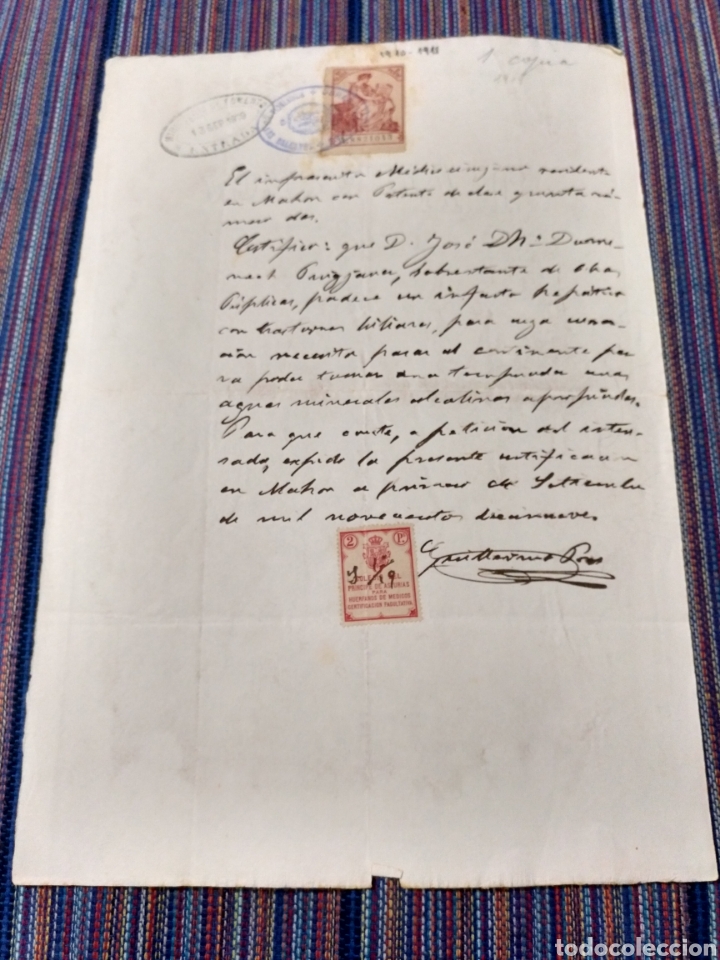 1910-1911
1 copia
ENTRADA
El infrascrito Médico cirujano residente
en Mahon con Patente de clase quinta nú-
mero dos.
Certifico: que D. José Mª
Puigjaner, Sobrestante de Obras
Públicas, padece un infarto hepático
con trastornos biliares, para cuya cura-
ción necesita pasar al continente pa-
ra poder tomar una temporada unas
aguas minerales alcalinas apropiadas.
Para que conste, a petición del intere-
sado, expido la presente certificacion
en Mahon a primero de Setiembre
de mil novecientos diecinueve
Guillermo Pons
2 Ps
COLEGIO DEL
PRINCIPE DE ASTURIAS
PARA
HUERFANOS DE MEDICOS
CERTIFICACION FACULTATIVA
todocoleccion